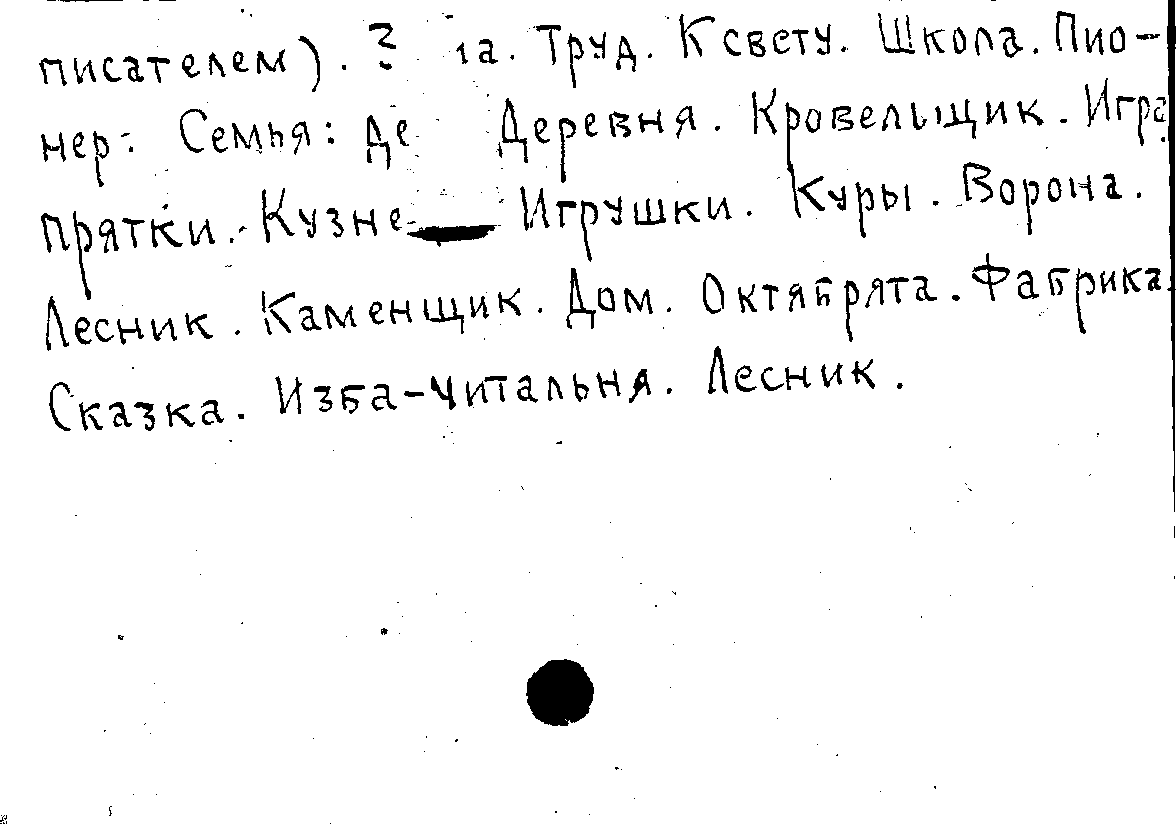 писателем). Труд. К свету. Школа. Пио-
нер. Семья: Деревня. Кровельщик. Игра
прятки. Игрушки. Куры. Ворона.
Лесник. Каменщик. Дом. Октябрята. Фабрика.
Сказка. Изба-читальня. Лесник.